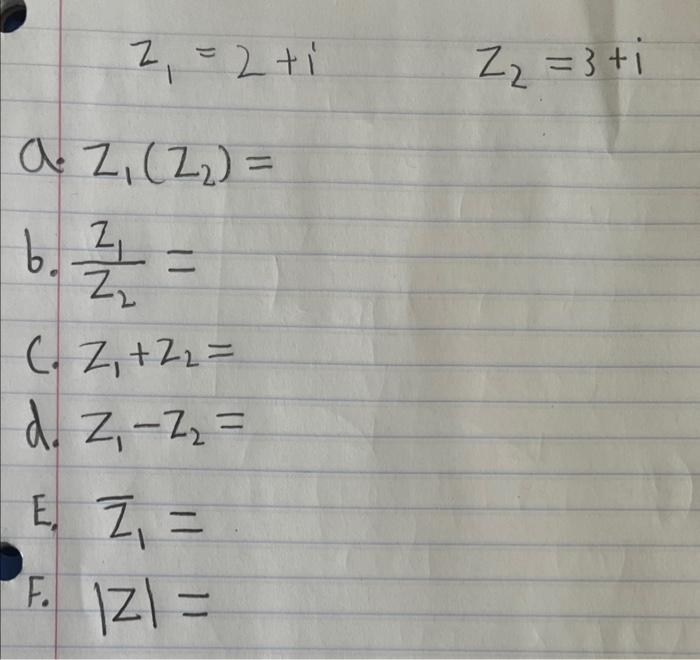 z₁ = 2 + i    z₂ = 3 + i
a. z₁(z₂) =
b. z₁/z₂ =
C. z₁ + z₂ =
d. z₁ - z₂ =
E. z̅₁ =
F. |z| =